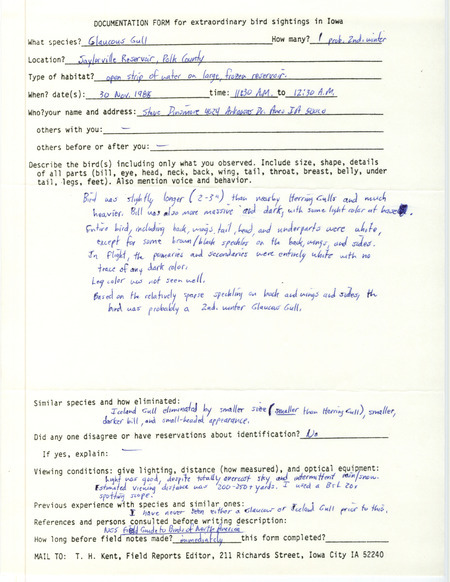 DOCUMENTATION FORM for extraordinary bird sightings in Iowa
What species? Glaucous Gull How many? 1 prob. 2nd. winter
Location? Saylorville Reservoir, Polk County
Type of habitat? open strip of water on large, frozen reservoir.
When? date(s): 30 Nov. 1988 time: 11:30 A.M. to 12:30 P.M.
Who?your name and address: Steve Dinsmore 4024 Arkansas Dr. Ames IA 50010
others with you: —
others before or after you: —
Describe the bird(s) including only what you observed. Include size, shape, details
of all parts (bill, eye, head, neck, back, wing, tail, throat, breast, belly, under
tail, legs, feet). Also mention voice and behavior.
Bird was slightly longer (2-3") than nearby Herring Gulls and much
heavier. Bill was also more massive and dark, with some light color at base.
Entire bird, including back, wings, tail, head, and underparts were white,
except for some brown/black speckles on the back, wings, and sides.
In flight, the primaries and secondaries were entirely white with no
trace of any dark color.
Leg color was not seen well.
Based on the relatively sparse speckling on back and wings and sides, the
bird was probably a 2nd. winter Glaucous Gull.
Similar species and how eliminated:
Iceland Gull eliminated by smaller size (smaller than Herring Gull), smaller,
darker bill, and small-headed appearance.
Did any one disagree or have reservations about identification? No
If yes, explain: —
Viewing conditions: give lighting, distance (how measured), and optical equipment:
Light was good, despite totally overcast sky and intermittent rain/snow.
Estimated viewing distance was 200-250+ yards. I used a B+L 20x
spotting scope.
Previous experience with species and similar ones:
I have never seen either a Glaucous or Iceland Gull prior to this.
References and persons consulted before writing description:
NGS Field Guide to Birds of North America
How long before field notes made? immediately this form completed?
MAIL TO: T. H. Kent, Field Reports Editor, 211 Richards Street, Iowa City IA 52240